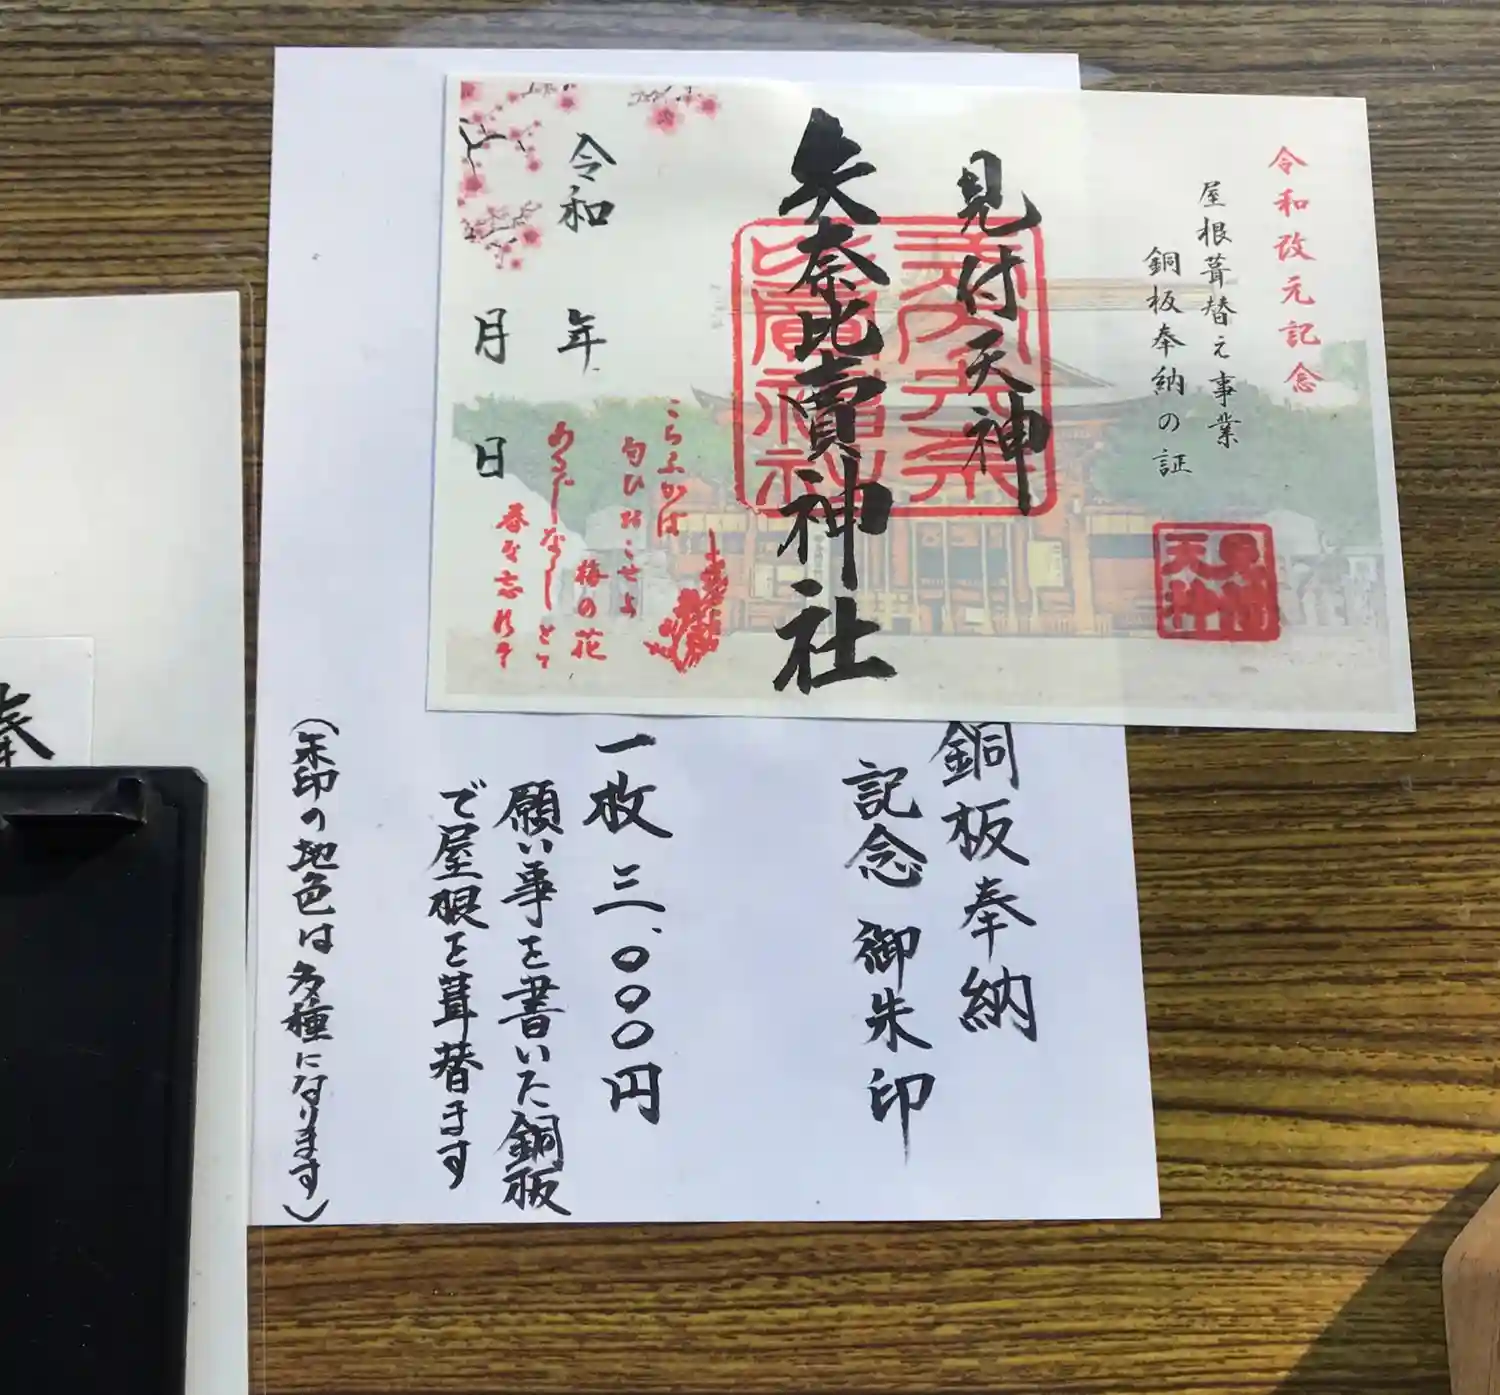 令和改元記念
屋根葺替え事業
銅板奉納の証
見付天神
矢奈比賣神社
令和 年
月 日
こちふかば
匂ひおこせよ
梅の花
あるじなしとて
春を忘れそ
見付
天神
銅板奉納
記念 御朱印
一枚 三、〇〇〇円
願い事を書いた銅板
で屋根を葺替ます
(朱印の地色は多種になります)
奉